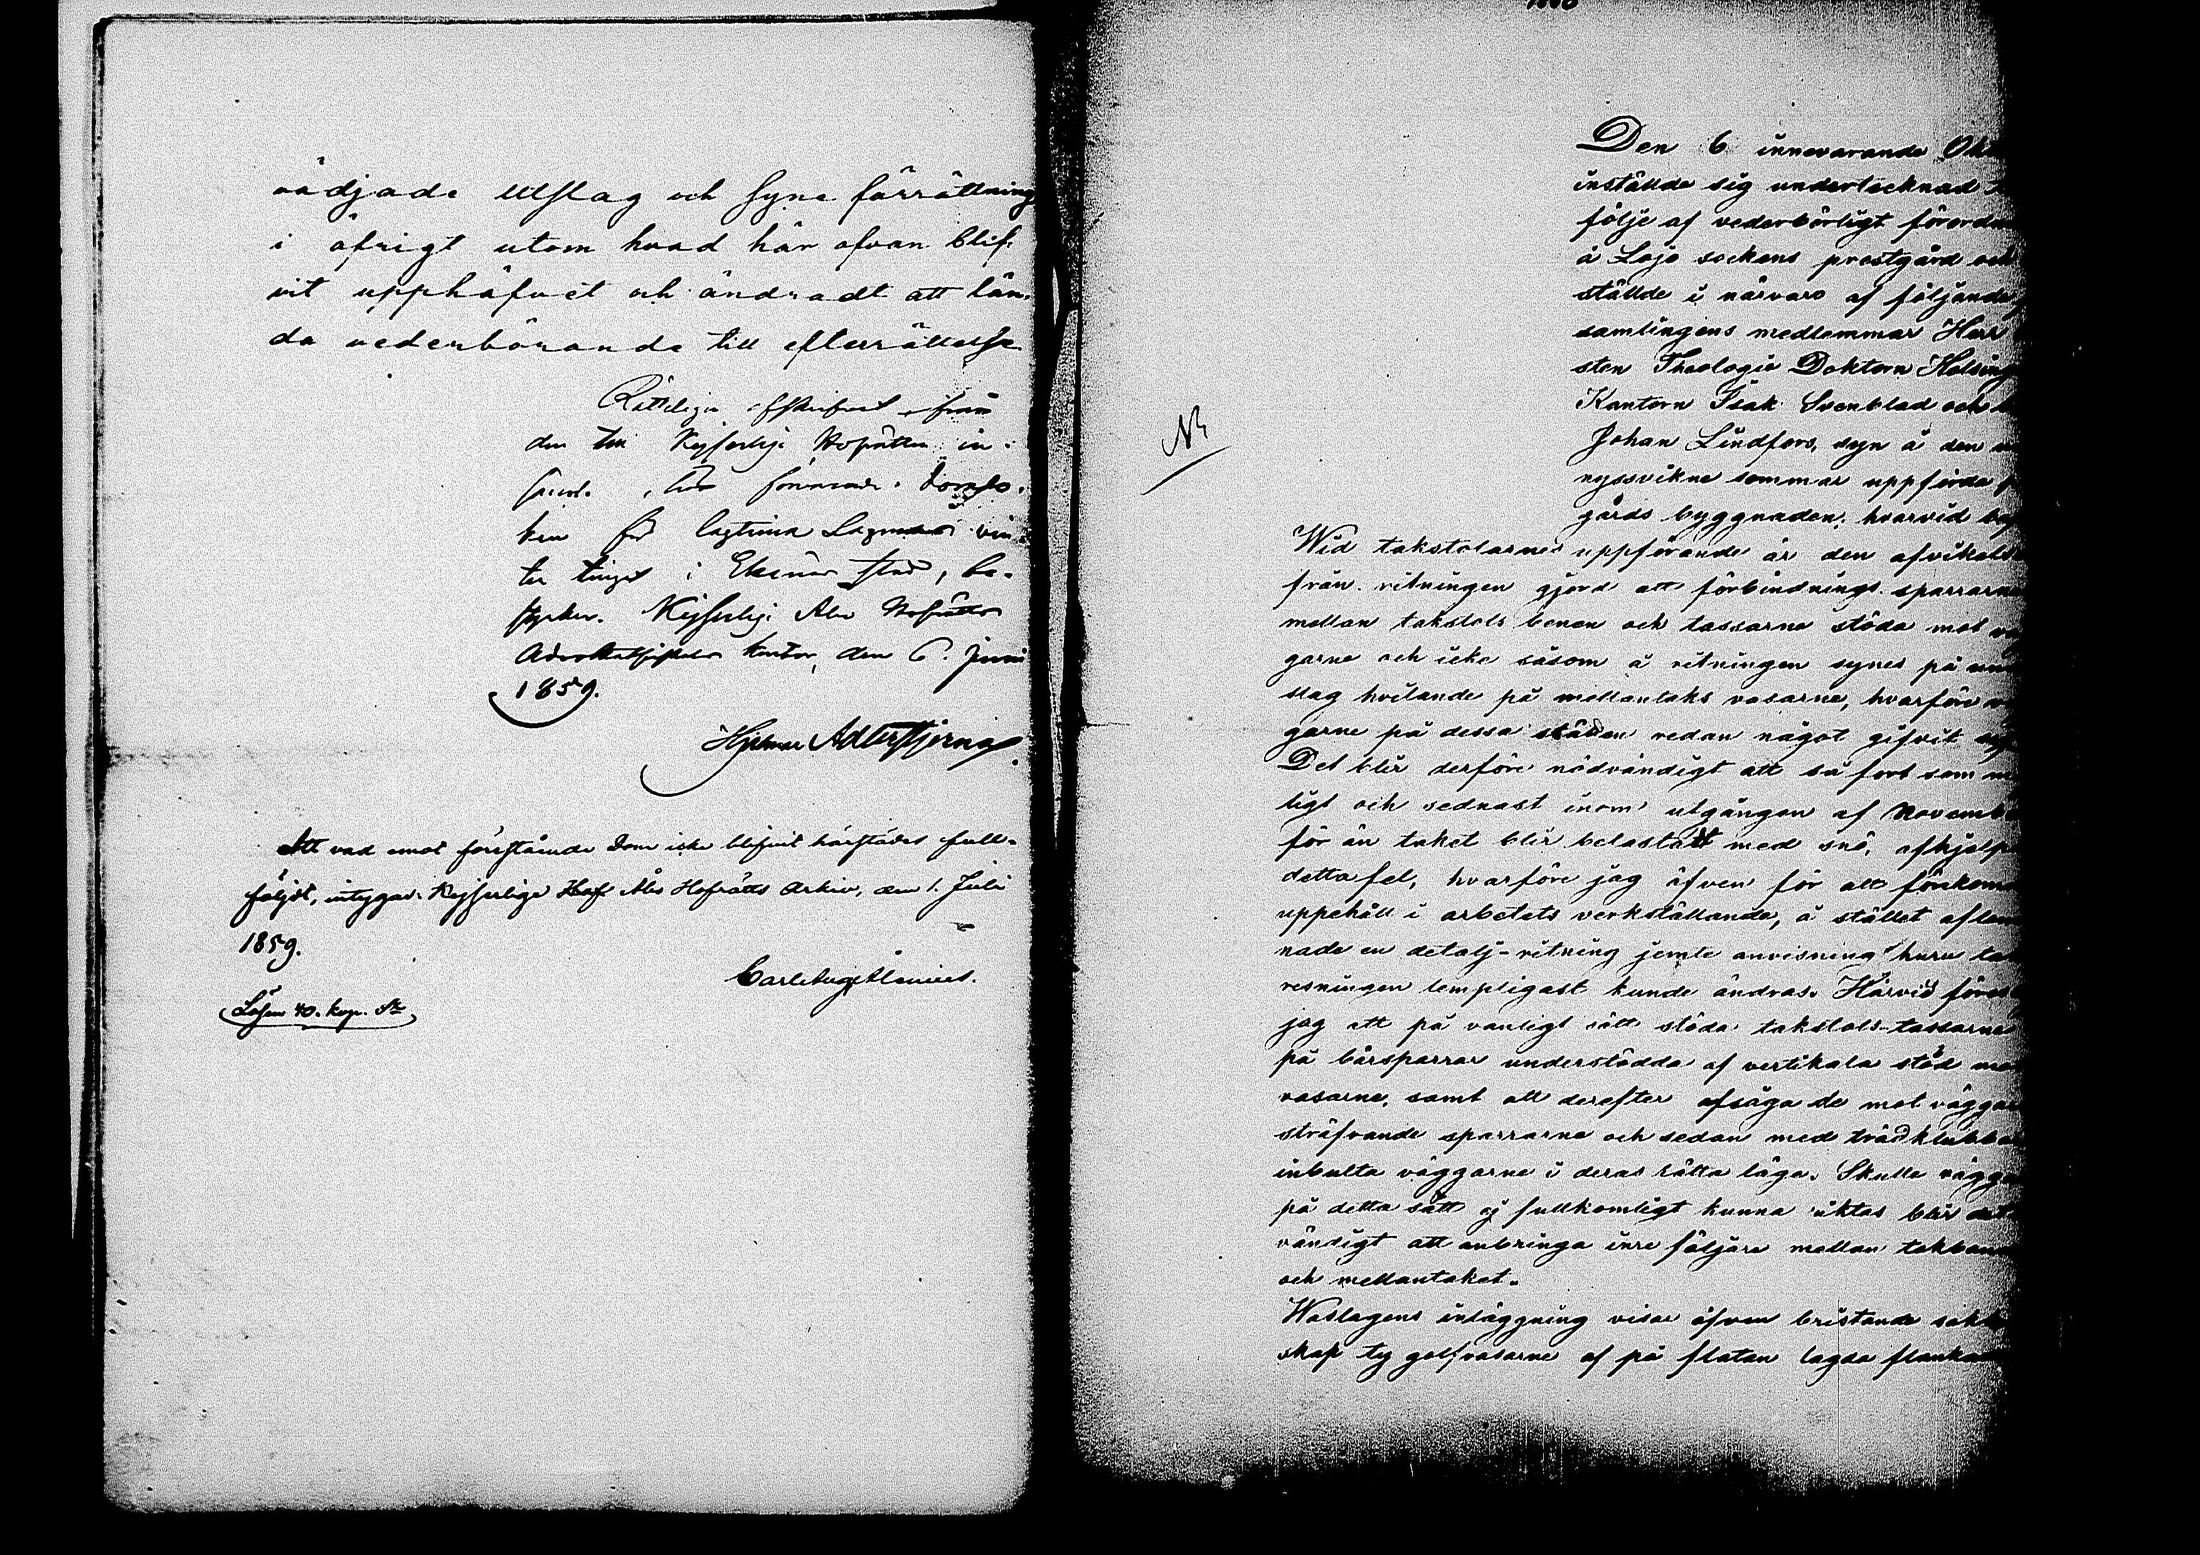 vädjade Utslag och Syne förrättning
i öfrigt utom hvad här ofvan blif-
vit upphäfvet och ändradt att län-
da vederbörande till efterrättelse
Rätteligen afskrifvet från
den till Kejserliga Hofrätten in-
sända, här förvarade dombo-
ken för lagtima Lagmans vin-
ter tinget i Ekenäs stad, be-
styrker. Kejserliga Åbo Hofrätts
Advokatfiskals Kontor, den 6. Juni
1859.
Hjalmar Adlerstjerna
Att vad emot förestående Dom icke blifvit härstädes full-
följdt, intygar. Kejserliga Åbo Hofrätts Arkiv, den 1. Juli
1859.
Carl Aug.
Lösen 40. kop. Sr
Den 6 innevarande Okt
inställde sig undertecknad
följe af vederbörligt förord
å Lojo sockens prestgård och
ställde i närvaro af följande
samlingens medlemmar Herr
sten Theologie Doktorn Helsing
Kantorn Isak Svenblad och
Johan Lindfors, syn å den
nyssvikne sommar uppförda
gårds byggnaden; hvarvid
Wid takstolarnes uppförande är den afvikels
från ritningen gjord att förbindnings sparrarne
mellan takstols benen och tassarne stöda mot
garne och icke såsom å ritningen synes på
slag hvilande på mellantaks vasarne, hvarföre
garne på dessa ställen redan något gifvit
Det blir derföre nödvändigt att så fort som
ligt och sednast inom utgången af Novemb
för än taket blir belastadt med snö, afhjelpa
detta fel, hvarföre jag äfven för att förekom
uppehåll i arbetets verkställande, å stället aflem
nade en detalj-ritning jemte anvisning huru
resningen lämpligast kunde ändras. Härvid föres
jag att på vanligt sätt stöda takstols-tassarne
på bärsparrar understödda af vertikala stöd
vasarne, samt att derefter afsåga de mot väggar
sträfvande sparrarne och sedan med trädklubbo
inbulta väggarne i deras rätta läge. Skulle vägga
på detta sätt ej fullkomligt kunna riktas blir det
vändigt att anbringa inre följare mellan takban
och mellantaket.
Waslagens inläggning visar äfven bristande sak
skap ty golfvasarne af på flatan lagda planka